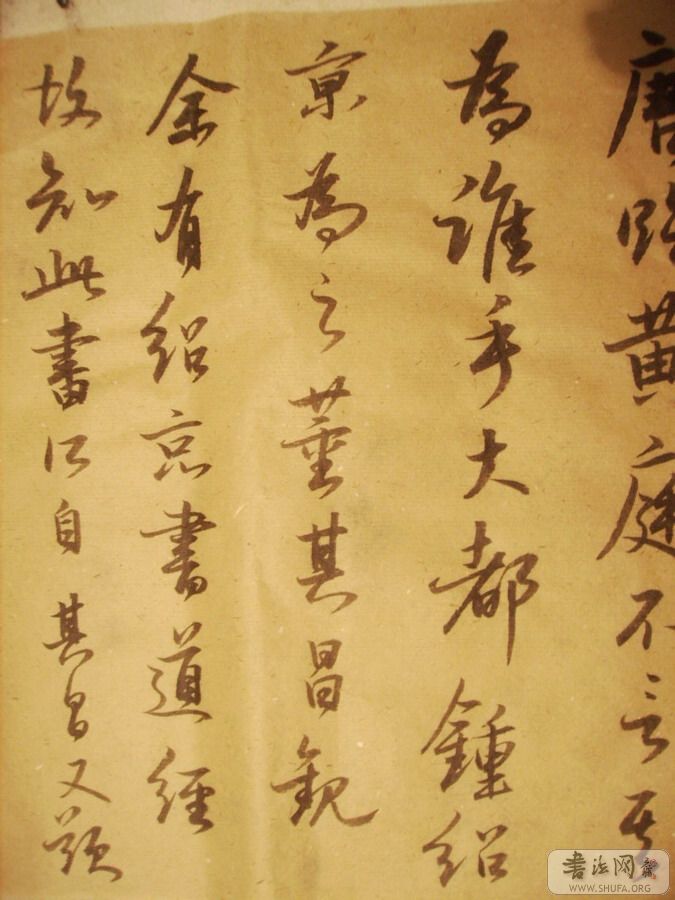 唐臨黃庭不言其
為誰手大都鍾紹
京為之董其昌觀
余有紹京書道經
故知此書所自其昌又題
书法网
WWW.SHUFA.ORG